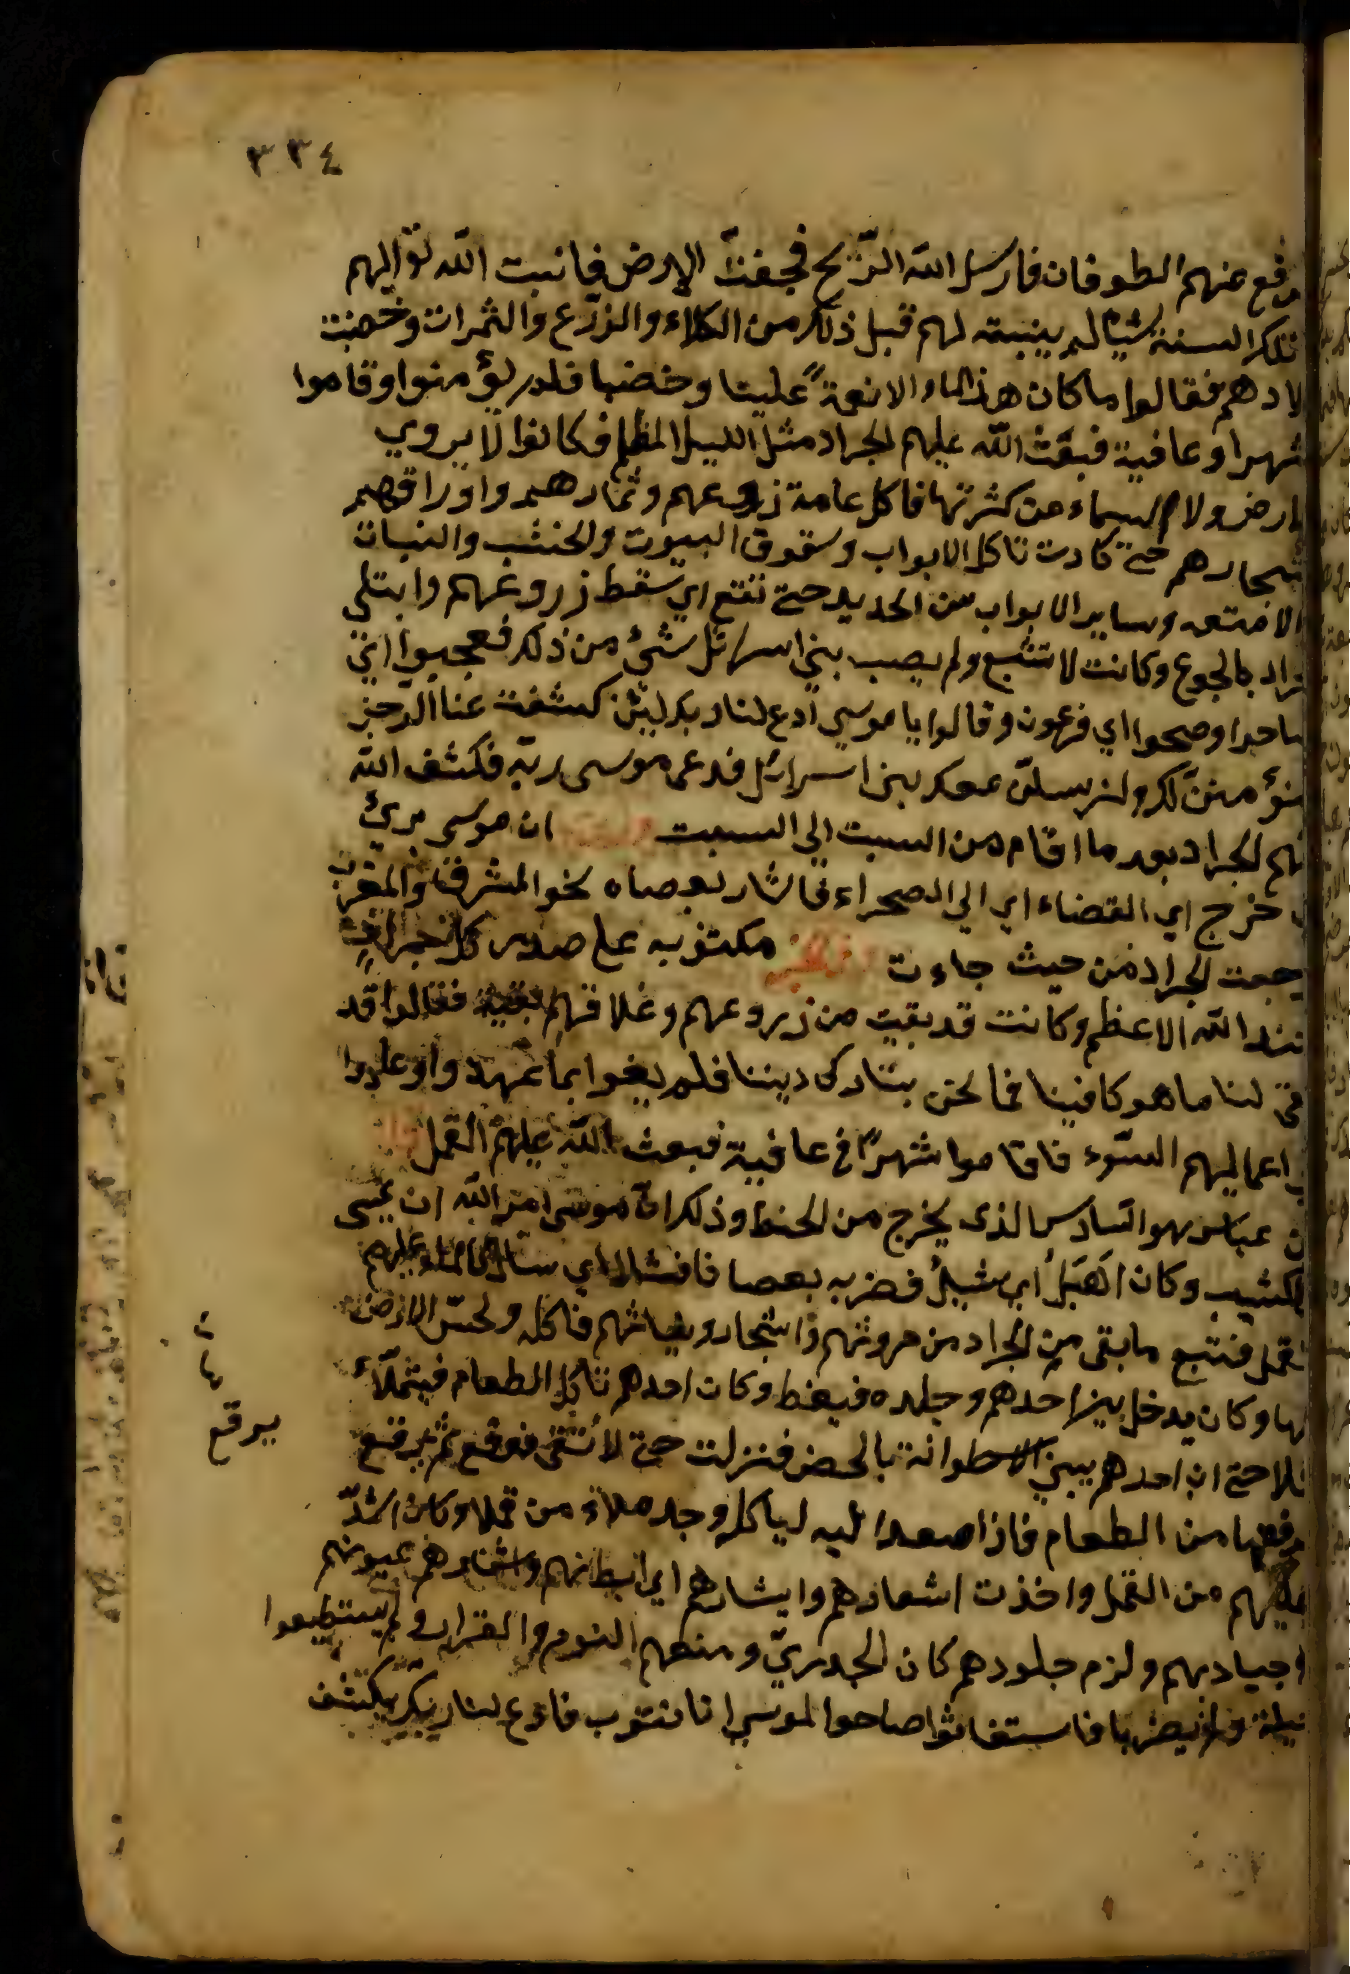 ٣٣٤
رفع عنهم الطوفان فارسل الله الرّيح فجففت الارض فانبت الله تع اليهم
تلك السنة شيأ لم ينبته لهم قبل ذلك من الكلاء والزرع والثمرات وخصبت
لادهم فقالوا ما كان هذا الماء الا نعمة علينا وخصبا فلم يؤمنوا وقاموا
شهرا وعافية فبعث الله عليهم الجراد مثل الليل المظلم فكانوا لا يروي
لارض ولا السماء من كثرتها فاكل عامة زروعهم وثمارهم واوراقهم
شجارهم حتى كادت تاكل الابواب وسقوف البيوت والخشب والنبات
الامتعه وساير الابواب من الحديد حتى تقع اي سقط زروعهم وابتلى
راد بالجوع وكانت لا تشبع ولم يصب بني اسرائل شئ من ذلك فعجبوا اي
صاحوا وضجوا اي فرعون وقالوا يا موسي ادع لنا ربك لئن كشفت عنا الرجز
نؤمنن لك ولنرسلن معك بني اسرائل فدعى موسى ربه فكشف الله
نهم الجراد بعد ما اقام من السبت الى السبت ان موسى برئ
خرج اي القضاء اي الي الصحراء فاشار بعصاه نحو المشرق والمغرب
رجعت الجراد من حيث جاءت مكتوب على صدر كل جراد
نند الله الاعظم وكانت قد بقيت من زروعهم وغلاقهم بقية فقالوا قد
قى لنا ما هو كافينا فما نحن بتارك ديننا فلم يفوا بما عهدوا وعادوا
اعمالهم السّوء فاقاموا شهرًا في عافية فبعث الله عليهم القمل قال
ن عباس هو السّادس الذى يخرج من الحنط وذلك انّ موسى امر الله ان يمشى
لكثيب وكان اهيل اي شبيل فضربه بعصا فانشال اي سال عليهم
لقمل فتتبع ما بقى من الجراد من حروثهم واشجار ونباتهم فاكله ولحسّ الارض
لها وكان يدخل بين احدهم وجلده فيعظ وكان احدهم تاكل الطعام فيتملأ
لا حتى ان احدهم يبني الاسطوانة بالجص فنزلت حتى لا تتقى فوقع ثم يرفع
يرفع
رفعها من الطعام فاذا صعد اليه لياكل وجد ملاء من قملا وكان اشدّ
عليهم من القمل واخذت اشعارهم وابشارهم اي ابطانهم واشفارهم عيونهم
وجيادهم ولزم جلودهم كان الجدريّ ومنعهم النوم والقرار ولم يستطيعوا
حيلة فاستغاثوا صاحوا لموسى انا نتوب فادع لنا ربك يكشف